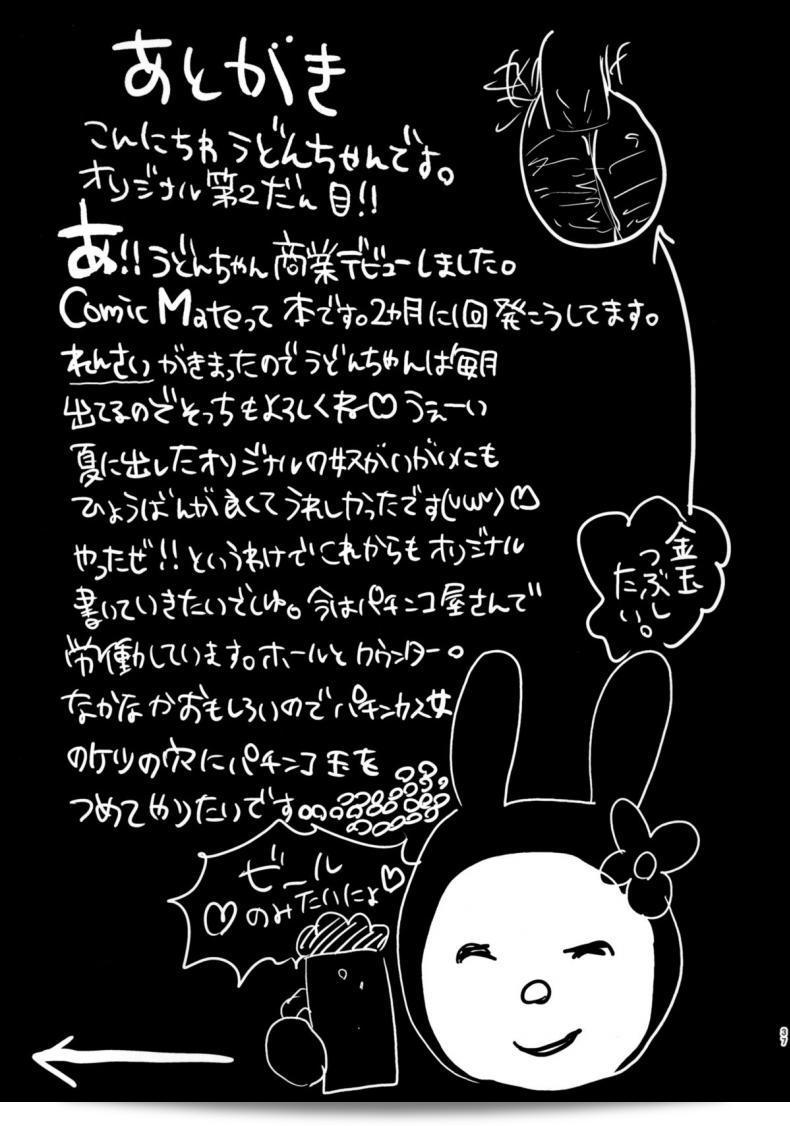 あとがき
こんにちわ うどんちゃんです。
オリジナル第2だん目!!
あ!!うどんちゃん商業デビューしました。
Comic Mateって 本です。2カ月に1回 発こうしてます。
れんさいがきまったのでうどんちゃんは毎月
出てるのでそっちもよろしくね♡うぇーい
夏に出したオリジナルの奴が
ひょうばんが良くてうれしかったです(υωυ)♡
やったぜ!!というわけでこれからもオリジナル
書いていきたいでしゅ。今はパチンコ屋さんで
労働しています。ホールとカウンター。
なかなかおもしろいのでパチンカス女
のケツの穴にパチンコ玉を
つめてやりたいです
金玉
つぶし
たい。
ビール
♡のみたいにょ♡
37